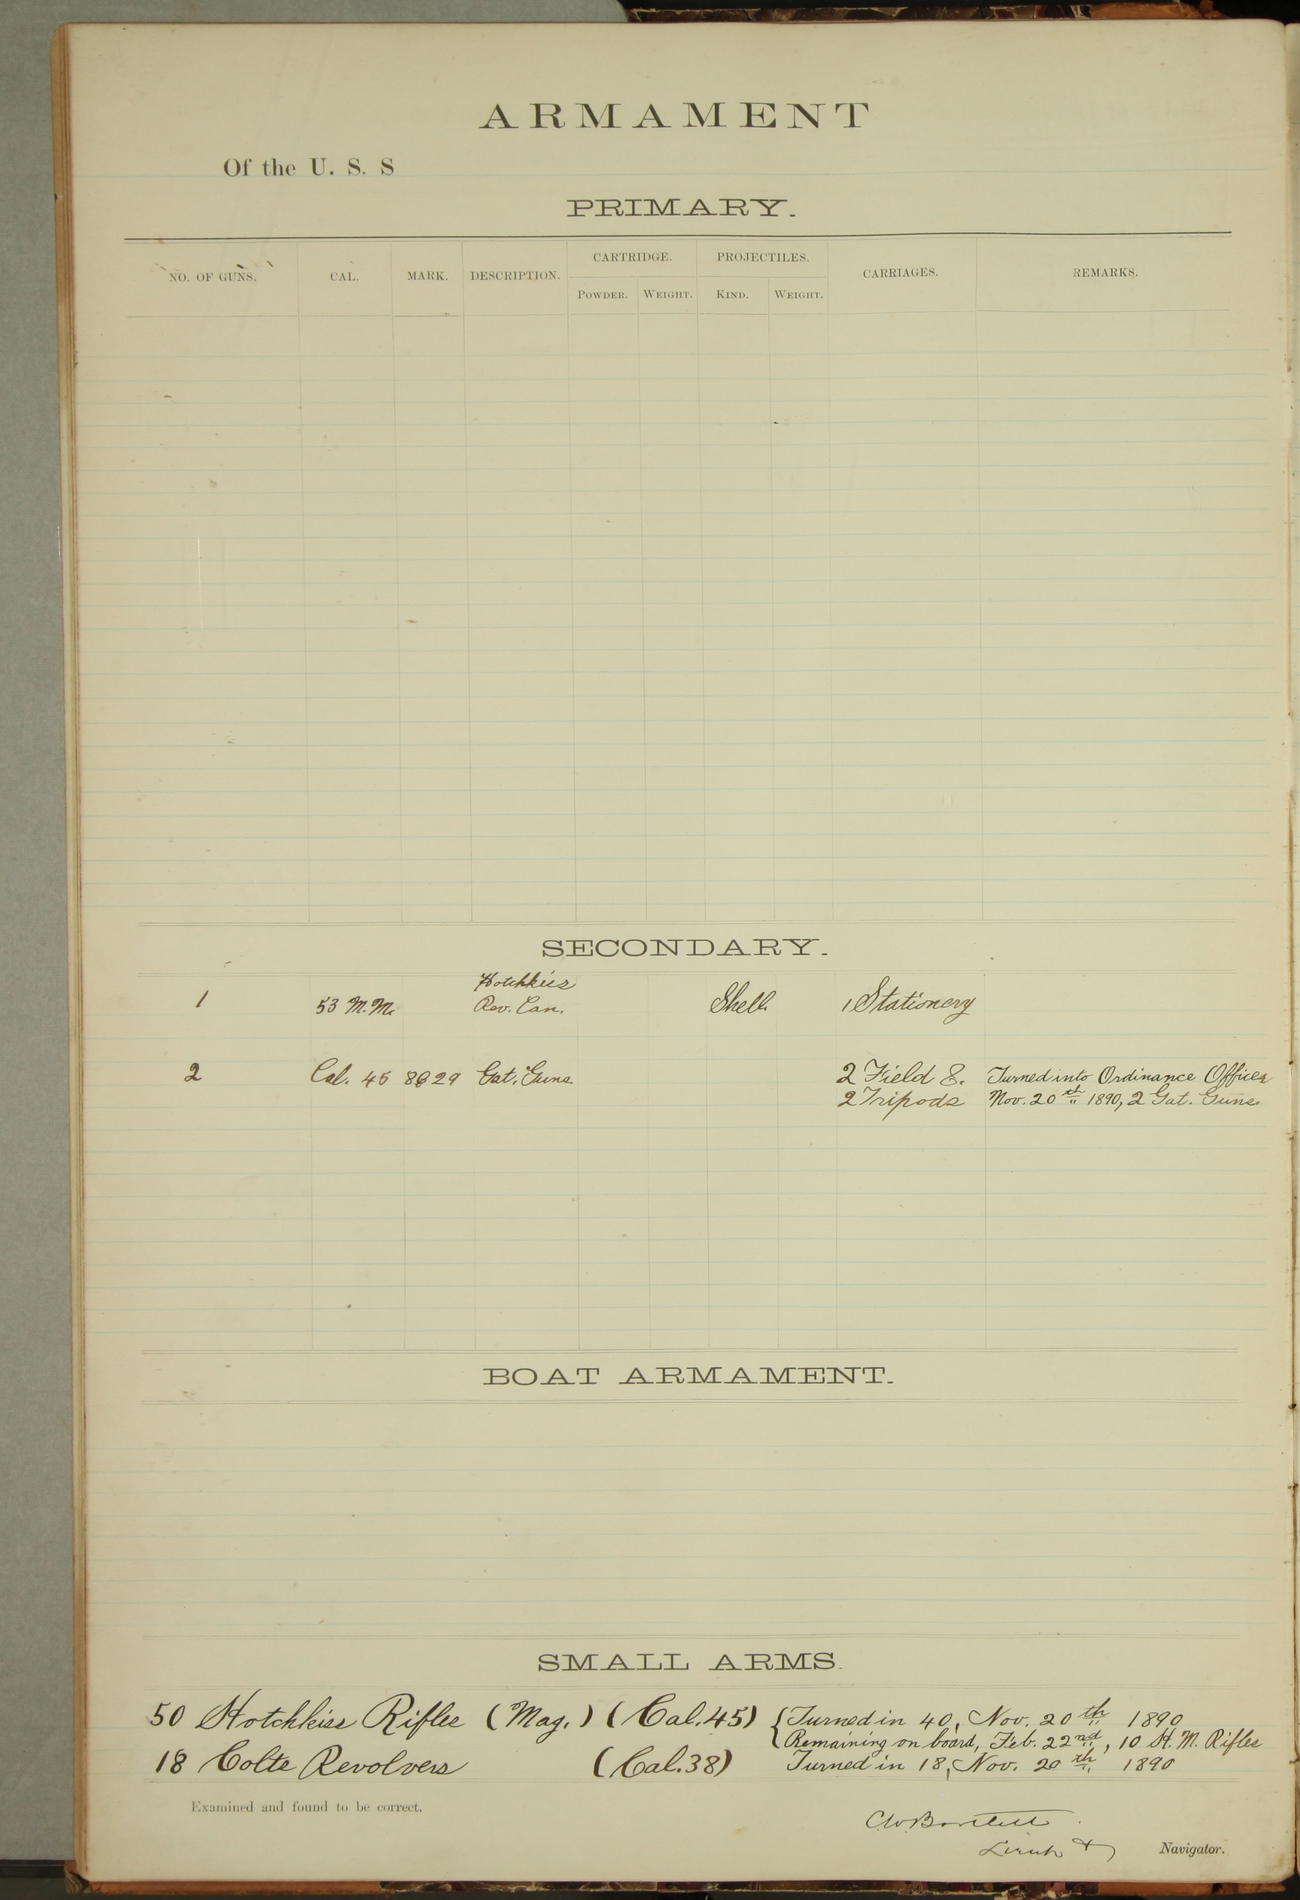 ARMAMENT
Of the U. S. S
PRIMARY.
NO. OF GUNS. CAL. MARK. DESCRIPTION. CARTRIDGE. PROJECTILES. CARRIAGES. REMARKS.
POWDER. WEIGHT. KIND. WEIGHT.
SECONDARY.
1 53 M.M. Hotchkiss Shell 1 Stationery
Rev. Can.
2 Cal. 45 Gat. Guns 2 Field &. Turned into Ordinance Officer
2 Tripods Nov. 20th 1890, 2 Gat. Guns
BOAT ARMAMENT.
SMALL ARMS.
50 Hotchkiss Rifles (Mag.) (Cal. 45) { Turned in 40, Nov. 20th 1890
Remaining on board, Feb. 22nd, 10 H. M. Rifles
18 Colts Revolvers (Cal. 38) Turned in 18, Nov. 20th 1890
Examined and found to be correct.
C.W. Bartlett
Lieut Navigator.